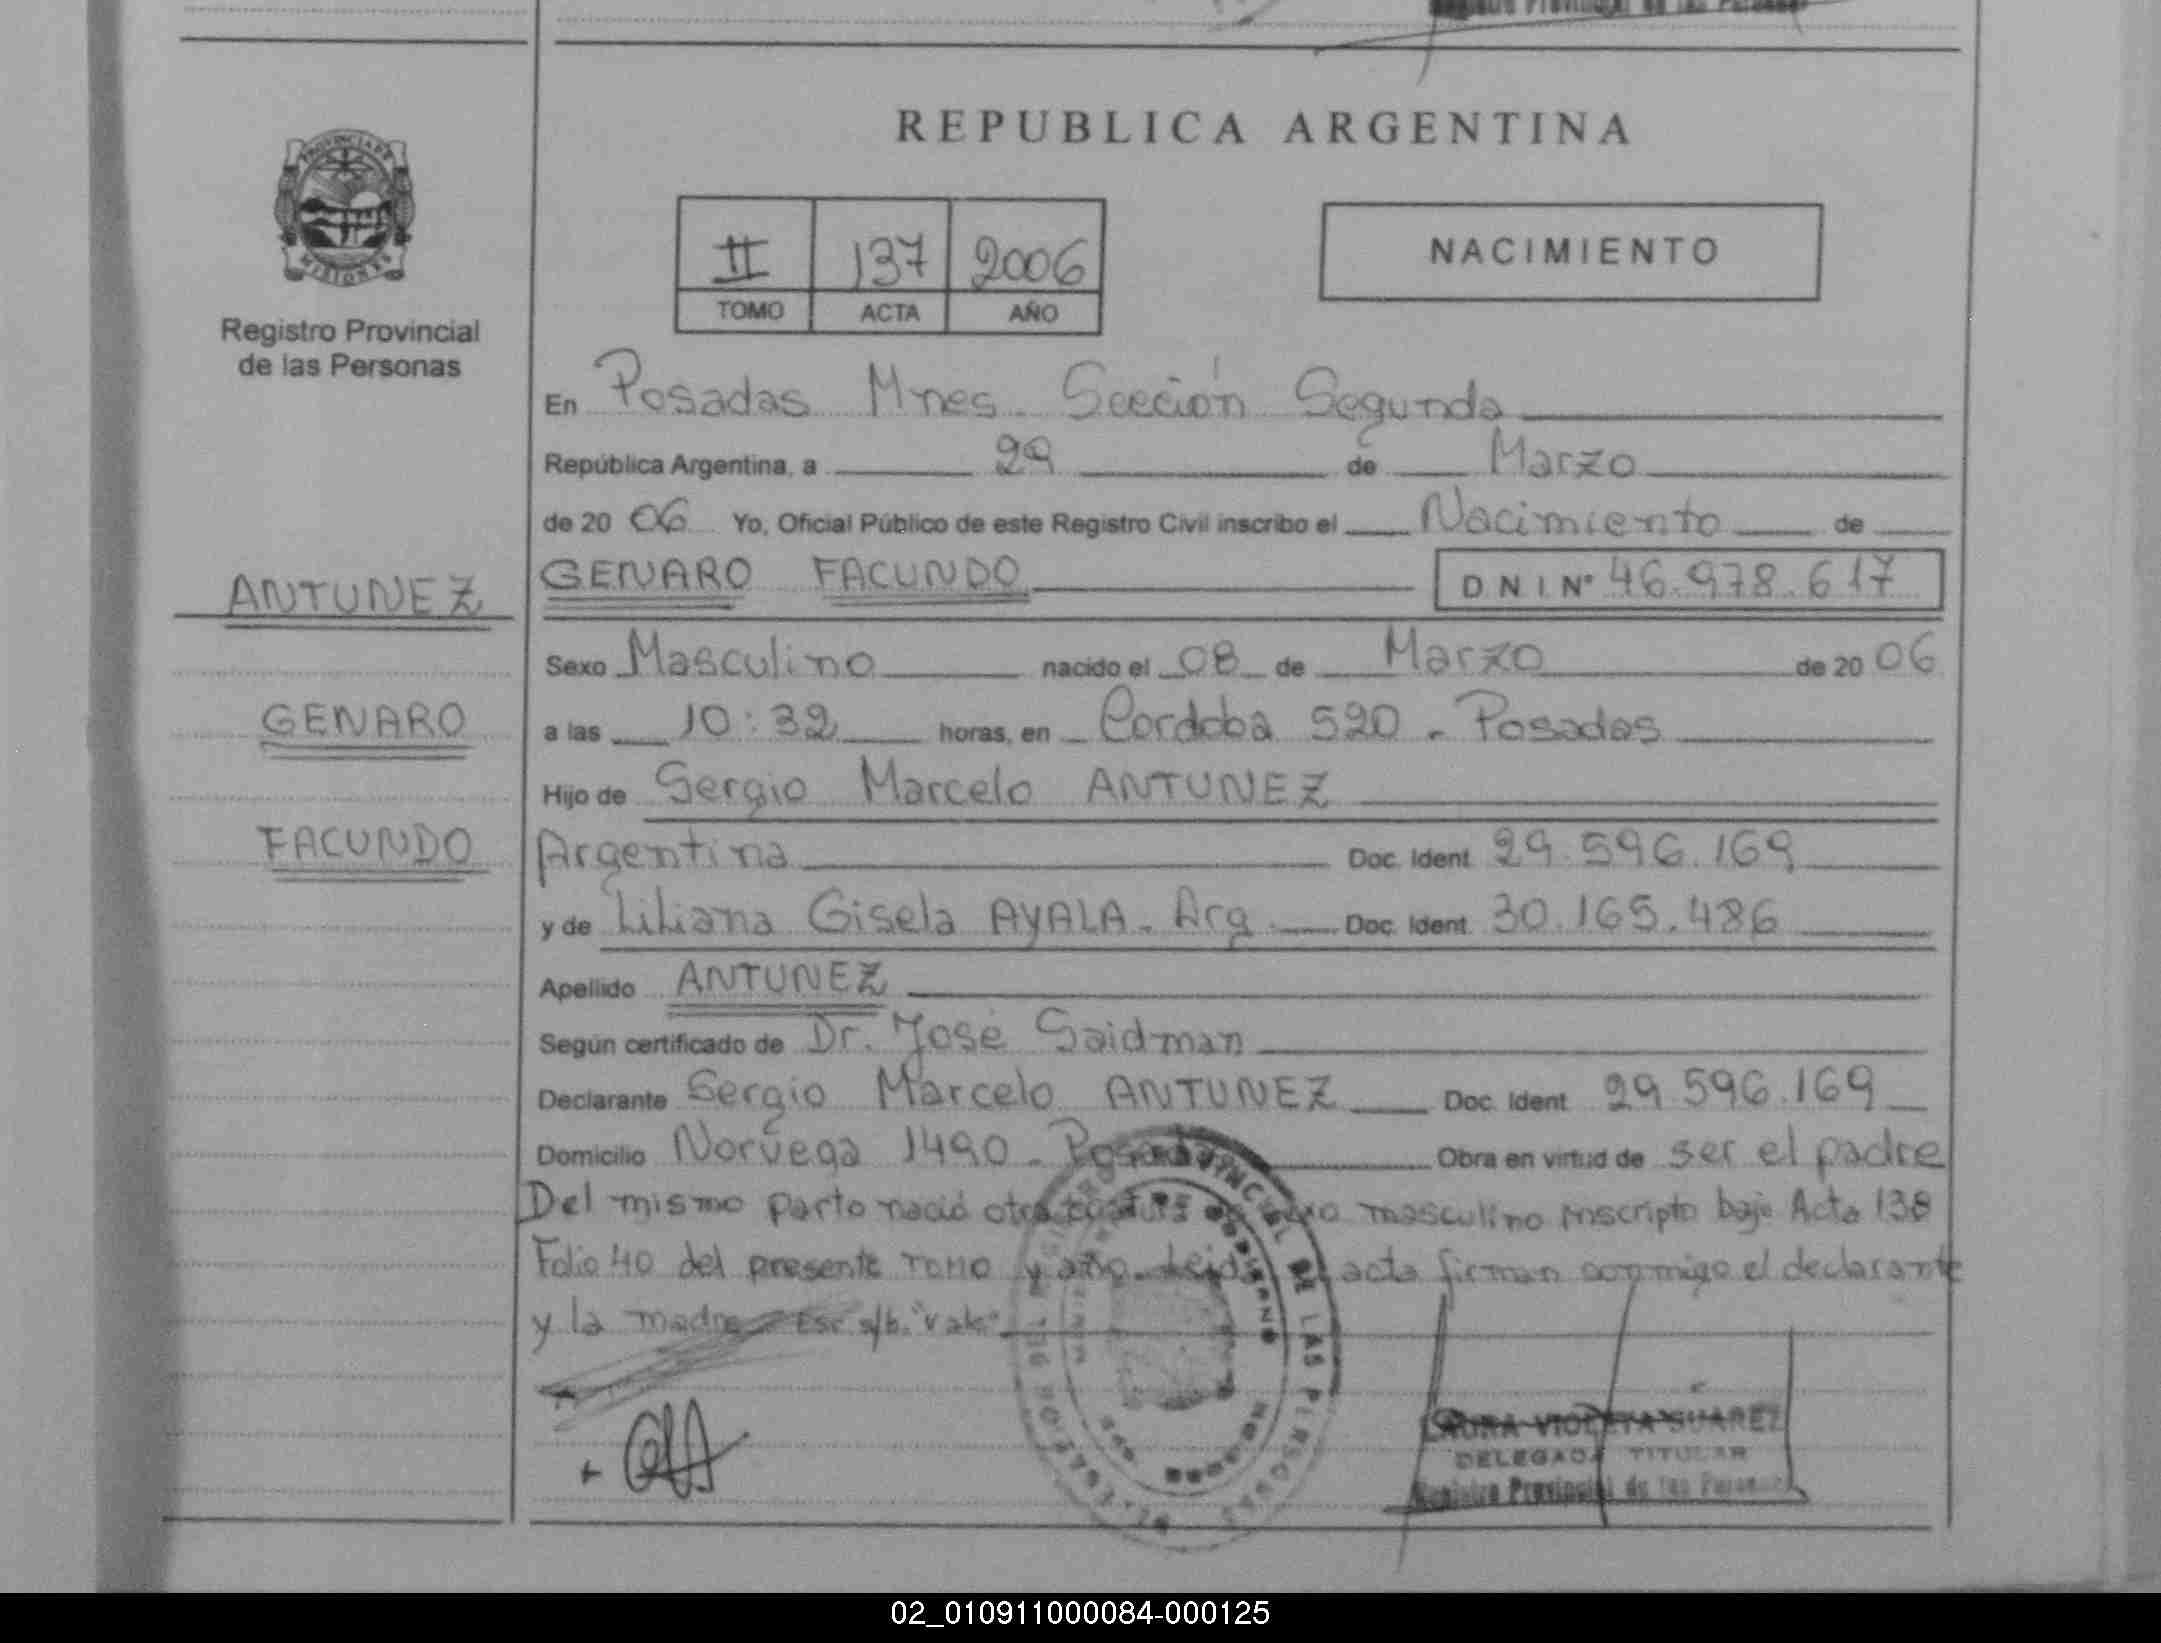 Registro Provincial de las Personas
REPUBLICA ARGENTINA
PROVINCIA DE
MISIONES
Registro Provincial
de las Personas
II 137 2006
TOMO ACTA AÑO
NACIMIENTO
En Posadas Mnes. Sección Segunda
República Argentina, a 29 de Marzo
de 2006 Yo, Oficial Público de este Registro Civil inscribo el Nacimiento de
ANTUNEZ
GENARO FACUNDO
D N I Nº 46.978.617
Sexo Masculino nacido el 08 de Marzo de 2006
GENARO
a las 10:32 horas, en Cordoba 520 - Posadas
Hijo de Sergio Marcelo ANTUNEZ
FACUNDO
Argentina Doc. Ident. 29.596.169
y de Liliana Gisela AYALA - Arg Doc. Ident. 30.165.486
Apellido ANTUNEZ
Según certificado de Dr. José Saidman
Declarante Sergio Marcelo ANTUNEZ Doc. Ident 29.596.169
Domicilio Noruega 1490 - Posadas Obra en virtud de ser el padre
Del mismo parto nació otra masculino inscripto bajo Acta 138
Folio 40 del presente Tomo y año. Leida acta firman conmigo el declarante
y la madre Esc s/b. "Vale"
DE LAS PERSONAS
LAURA VIOLETA SUAREZ
DELEGADA TITULAR
Registro Provincial de las Personas
02_010911000084-000125